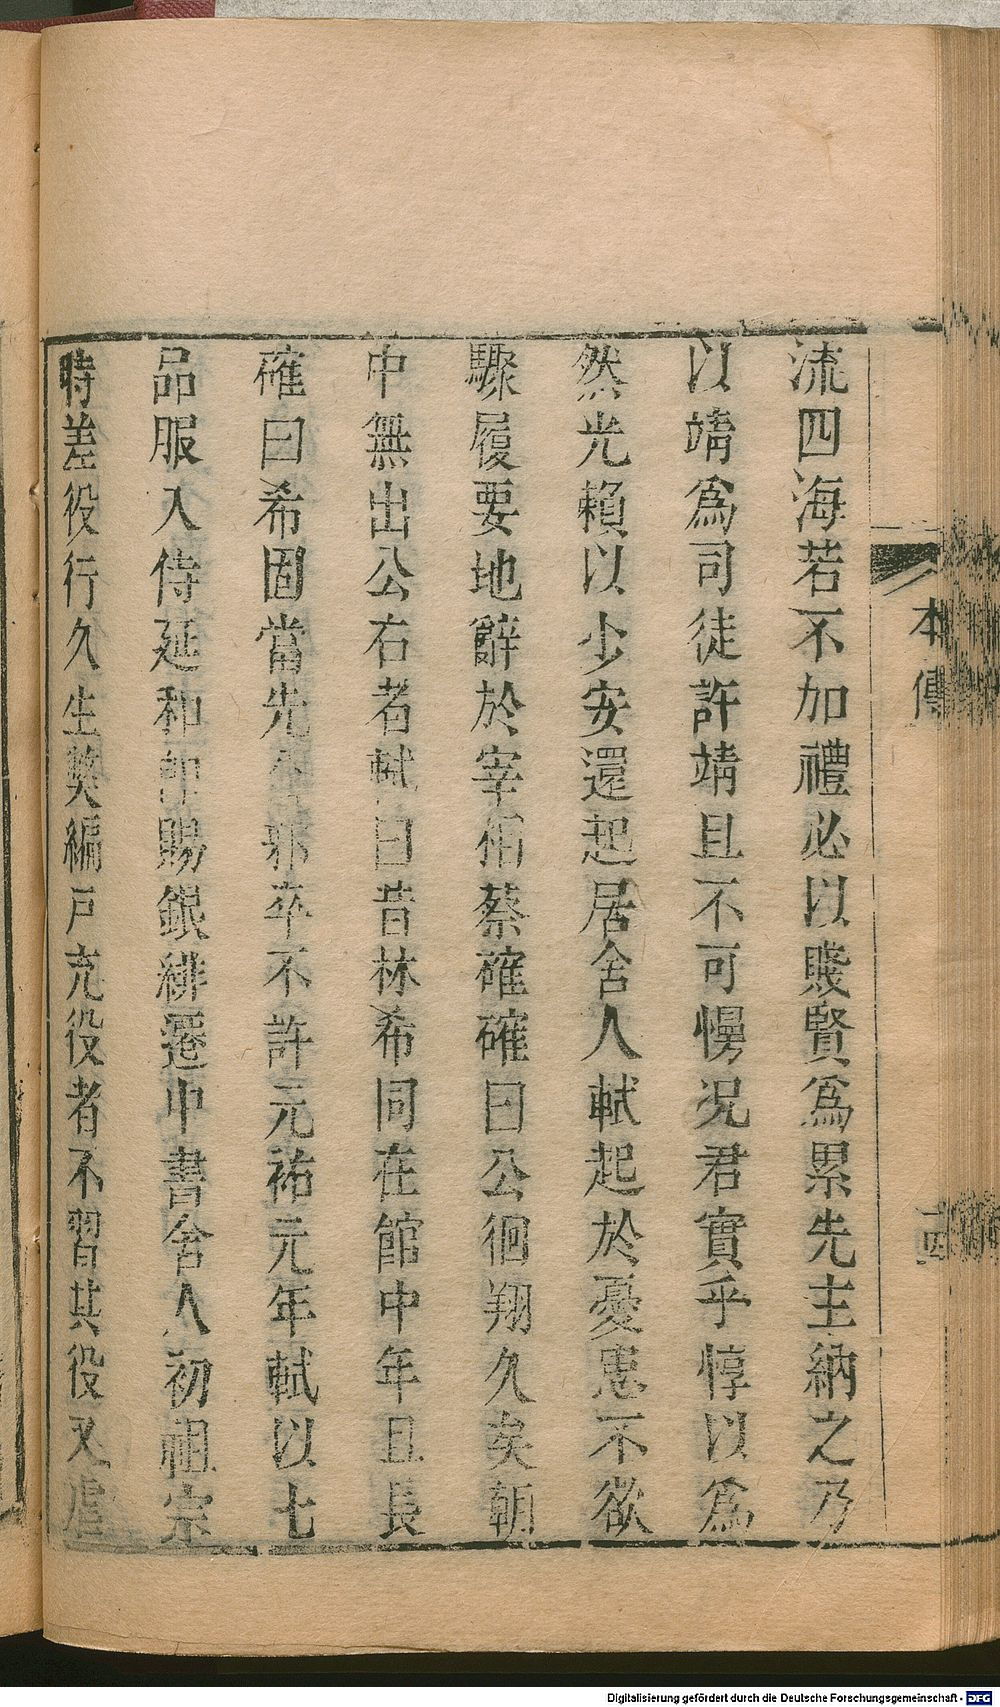 流四海若不加禮必以賤賢爲累先主納之乃
以靖爲司徒許靖且不可慢况君實乎惇以爲
然光賴以少安還起居舍人軾起於憂患不欲
驟履要地辭於宰相蔡確確曰公徊翔久矣朝
中無出公右者軾曰昔林希同在館中年且長
確曰希固當先公邪卒不許元祐元年軾以七
品服入侍延和即賜銀緋遷中書舍人初祖宗
時差役行久生獘編戶充役者不習其役又虐
本傳
十四
Digitalisierung gefördert durch die Deutsche Forschungsgemeinschaft - DFG